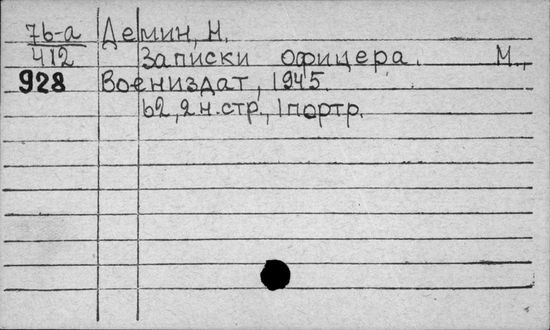 7б-а Демин, Н.
412 Записки офицера. М.,
928 Воениздат, 1945.
62, 2 н.стр., 1 портр.